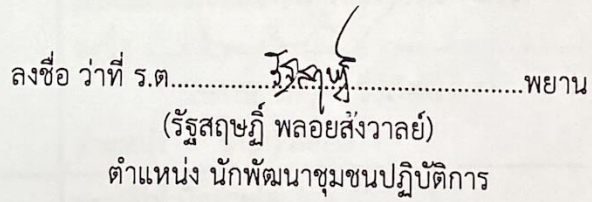 ลงชื่อ ว่าที่ ร.ต.......................................................พยาน
(รัฐสฤษฎิ์ พลอยสังวาลย์)
ตำแหน่ง นักพัฒนาชุมชนปฏิบัติการ